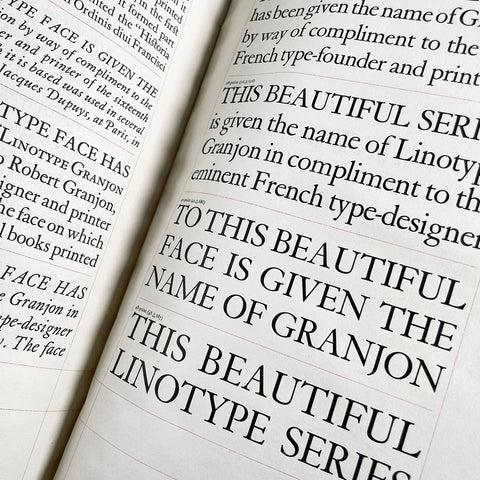 printed
It formed part
printed the "Historia
Ordinis diui Francisci
TYPE FACE IS GIVEN THE
tion by way of compliment to the
er and printer of the sixteenth
h it is based was used in several
Jacques Dupuys, at Paris, in
TYPE FACE HAS
LINOTYPE GRANJON
o Robert Granjon,
igner and printer
the face on which
l books printed
E FACE HAS
e Granjon in
ype-designer
y. The face
has been given the name of Gran
by way of compliment to the
French type-founder and print
THIS BEAUTIFUL SERI
is given the name of Linotyp
Granjon in compliment to th
eminent French type-designer
TO THIS BEAUTIFUL
FACE IS GIVEN THE
NAME OF GRANJON
THIS BEAUTIFUL
LINOTYPE SERIES